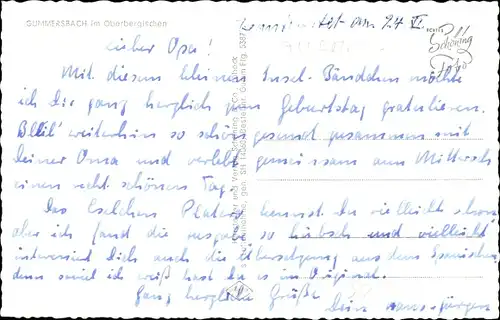 GUMMERSBACH im Oberbergischen
am 24. VI.
ECHTES
Schöning
Foto
Lieber Opa!
Mit diesem kleinen Insel-Bändchen möchte
ich Dir ganz herzlich zum Geburtstag gratulieren.
Bleib' weiterhin so schön gesund zusammen mit
Deiner Oma und verlebt gemeinsam am Mittwoch
einen recht schönen Tag.
Das Eselchen Platero kennst Du vielleicht schon
aber ich fand die Ausgabe so hübsch und vielleicht
interessiert Dich auch die Übersetzung aus dem Spanischen
denn soviel ich weiß hast Du es im Original.
Ganz herzliche Grüße
Dein Hans-Jürgen